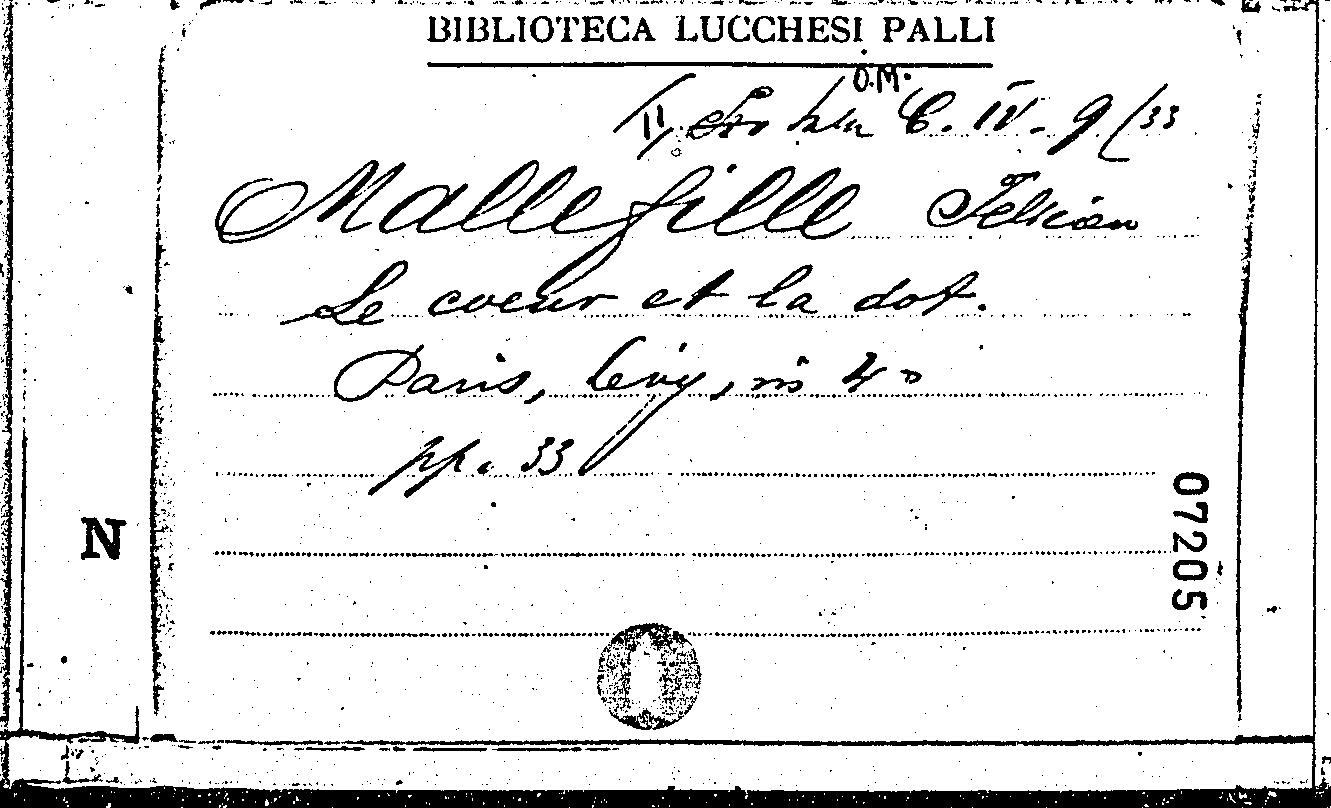 BIBLIOTECA LUCCHESI PALLI
O.M.
C. IV. 9/33
Mallefille Felicien
Le coeur et la dot.
Paris, Levy, in 4º
pp. 33
N
07205